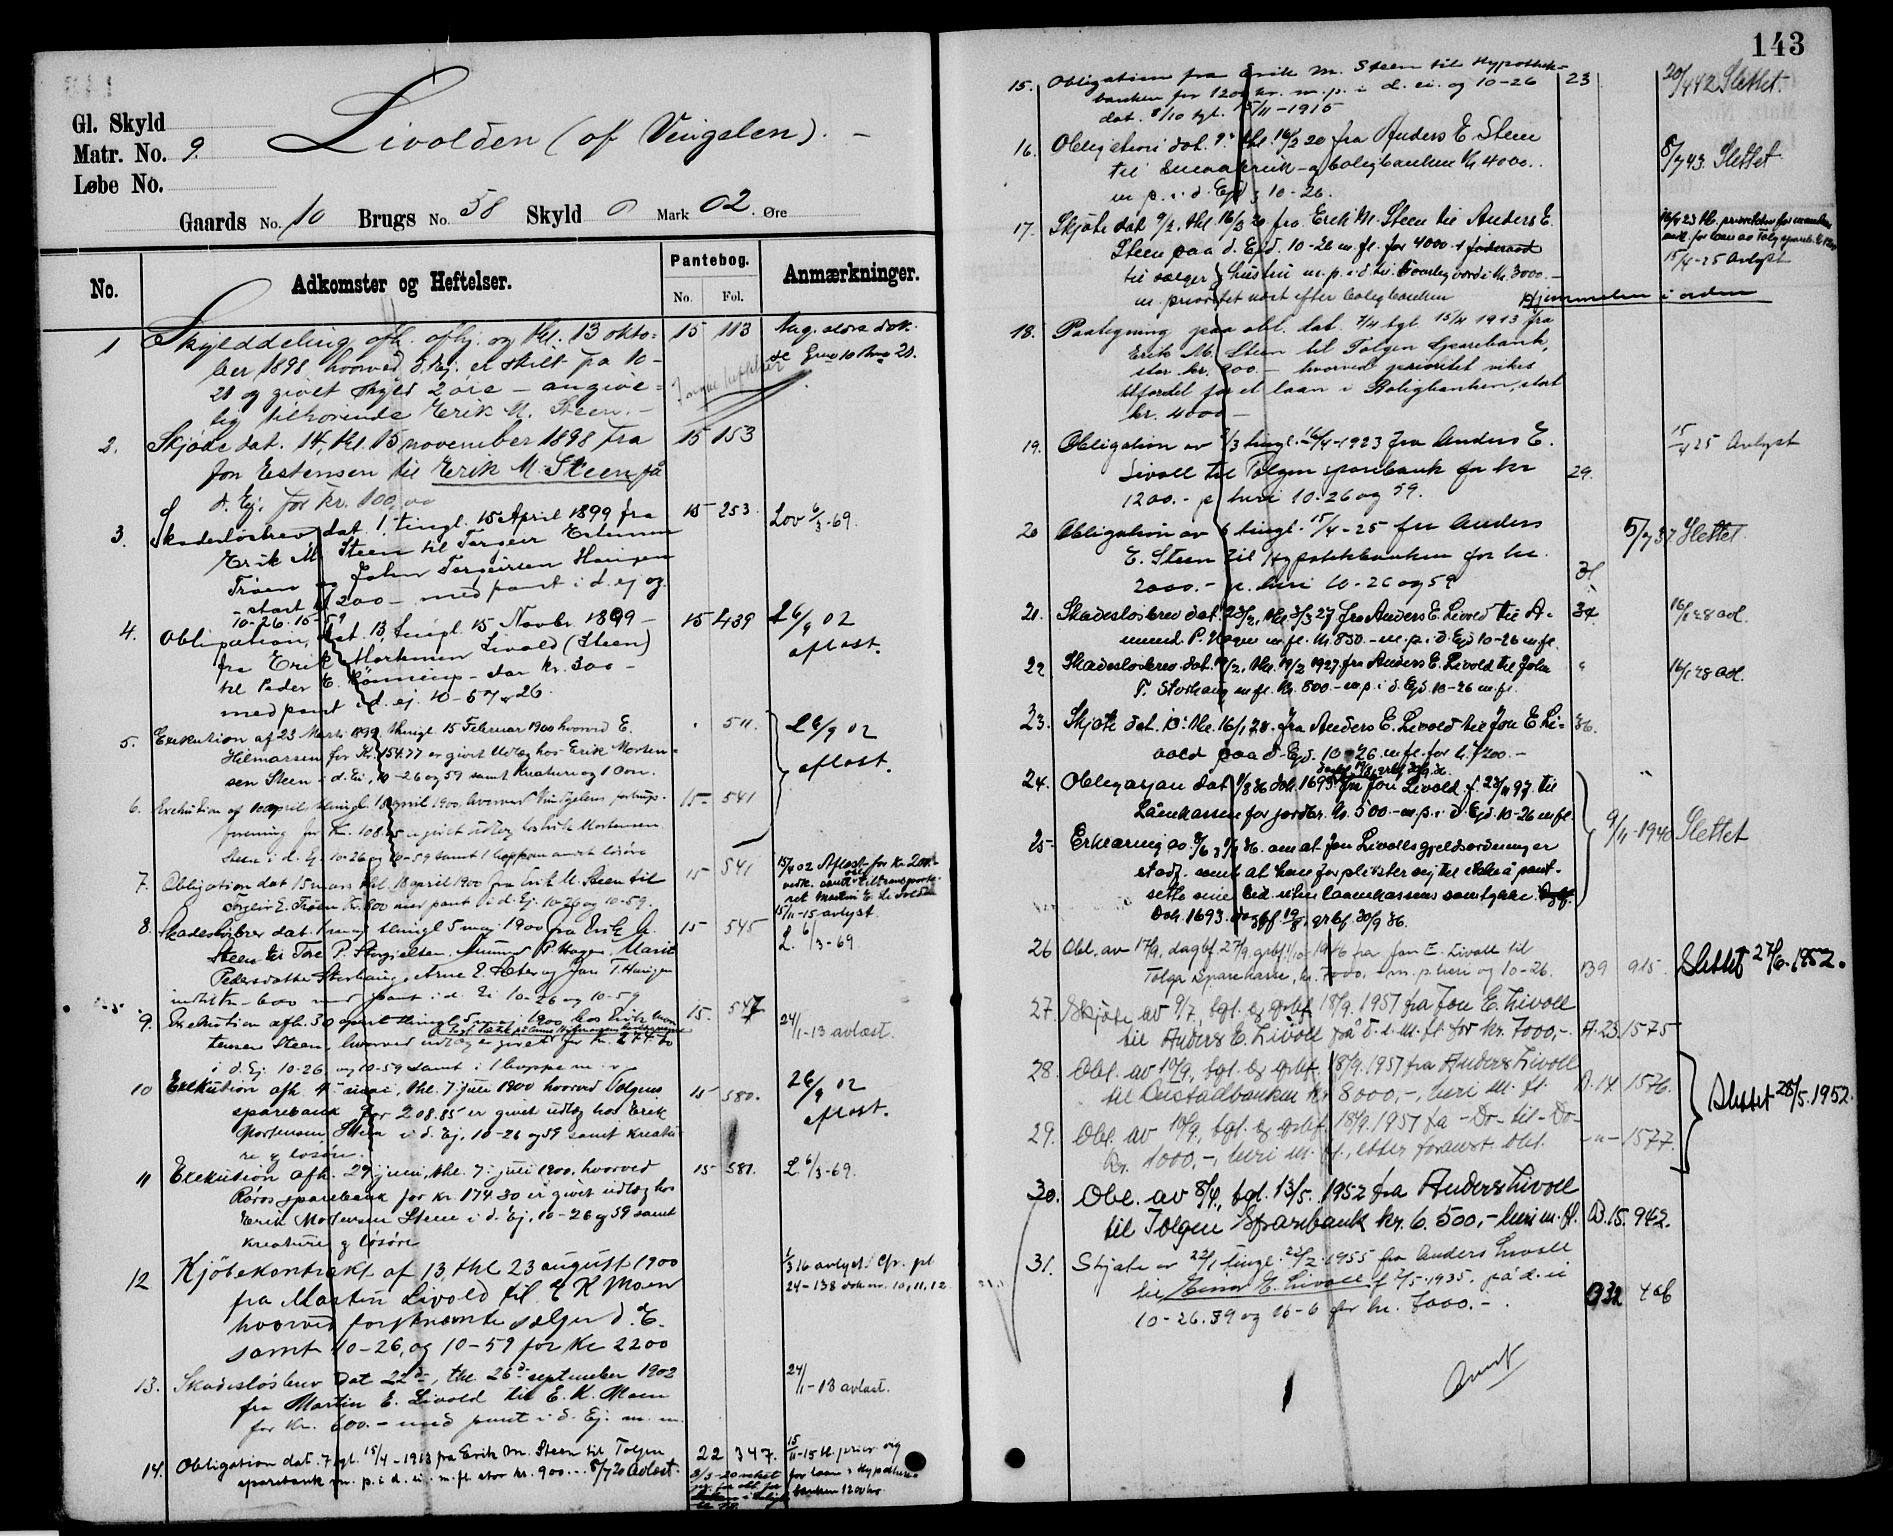 143
Gl. Skyld
Matr. No. 9.
Løbe No.
Livolden (af Vingelen). –
Gaards No. 10 Brugs No. 58 Skyld 0 Mark 02. Øre
No.
Adkomster og Heftelser.
Pantebog.
No. Fol.
Anmærkninger.
1 Skylddeling afh. afhj. og thl. 13 okto- 15 113
ber 1898 hvorved d. Ej. er skilt fra 10-
28 og givet skyld 2 øre – angive-
lig tilhørende Erik M. Steen. –
Ang. eldre dok.
se Gno 10 Bno 28.
2. Skjøde dat. 14, thl. 15 november 1898 fra 15 153
Jon Estensen til Erik M. Steen på
d. Ej. for kr. 100,00
3. Skadesløsbrev dat. 1. tingl. 15 April 1899 fra 15 253. Lov 6/3-69.
Erik M Steen til Torgeir Estensen
Trøen og John Torgeirsen Haugen
– stort kr 200 – med pant i d. ej og
10-26. 10-59
4. Obligation, dat. 13, tingl. 15 Novbr. 1899 – 15 439 L 26/9 02
fra Erik Mortensen Livold (Steen) aflæst.
til Peder E. Rønning – stor kr. 300 –
med pant i d. ej. 10-57 & 26.
5. Exekution af 23 Marts 1899 thingl. 15 Februar 1900 hvorved E. " 511. L 26/9 02
Hilmarsen for Kr. 154.77 er givet Udlæg hos Erik Morten- aflæst.
sen Steen i d. Ei, 10-26 og 59 samt Kreaturer og løsøre.
6. Exekution af 10 april, thingl. 18 april 1900 hvorved Vingelens forbrugs- 15- 541
forening for Kr. 108.85 er givet udlæg hos Erik Mortensen
Steen i d. Ej. 10-26 og 10-59 samt 1 hoppe m andet løsøre
7. Obligation dat 15 mars thl. 18 april 1900 fra Erik M. Steen til 15 541
Torgeir E. Trøen Kr. 800 mer pant i d. Ej. 10-26 og 10-59.
15/11-15 avlyst.
8. Skadesløsbrev dat. 1 maj thingl 5 maj 1900 fra Erik M. 15 545 L. 6/3-69.
Steen til Tore P. Storgjelten, Amund P. Hagen, Marit
Pedersdatter Storhaug, Arne E. Sæter og Jon T. Haugen
indtil kr – 600 med pant i d. Ei 10-26 og 10-59
9. Exekution afh. 30 april thingl. 5 maj 1900 hos Erik Mor- 15. 547 24/1-13 avlæst.
tensen Steen, hvorved udlæg er givet for Kr. 274.70
i d. Ej. 10-26 og 10-59 samt i 1 hoppe m.v.
10 Exekution afh. 4 mai, thl. 7 juli 1900 hvorved Tolgens 15 580. L 26/9 02
sparebank for 208.85 er givet udlæg hos Erik aflæst.
Mortensen Steen i d. Ej, 10-26 og 59 samt kreatu-
re og løsøre.
11 Exekution afh. 29 juni, thl. 7 juli 1900, hvorved 15 581. L 6/3-69.
Røros sparebank for kr. 174.30 er givet udlæg hos
Erik Mortensen Steen i d. Ej, 10-26 og 59 samt
kreature og løsøre
12 Kjøbekontrakt af 13, thl 23 august 1900
fra Martin Livold til E K Moen
hvorved førstnævnte sælger d. E.
samt 10-26, og 10-59 for Kr 2200
1/3 16 avlyst. Cfr. pt
24-138 dok nr. 10, 11, 12
13. Skadesløsbrev Dat 22de, thl. 26de september 1902
fra Martin E. Livold til E. K. Moen
for Kr. 600. – med pant i d. Ej. m. m.
24/1-13 avlæst.
14. Obligation dat. 7 tgl. 15/4-1913 fra Erik M. Steen til Tolgen 22 347.
sparebank m. p. i d. ei. m. fl. stor kr. 900. – 8/7 20 Avlæst.
15/11-15 tl. prior. vig
for laan i Hypothek-
banken 1200 kr.
15. Obligation fra Erik M. Steen til Hypothek- 23 20/4 42 Slettet.
banken for 1200 kr. m. p. i d. ei. og 10-26
dat. 8/10 tgl. 15/11-1915
16. Obligation dat. 9. thl. 16/2 20 fra Anders E. Steen
til Småbruk- og boligbanken kr 4000.. 8/7 43. Slettet
m p. i d. Ejd & 10-26.
17. Skjøte dat 9/2, thl. 16/2 20 fra Erik M. Steen til Anders E.
Steen paa d. Ejd. 10-26 m. fl. for 4000. + føderaad
til sælger & hustru m. p. i d. til 5 aarlig værdi kr. 3000. –
m. prioritet næst efter boligbanken
15/4-25 Avlyst
Hjemmelen i orden
18. Paategning paa obl. dat. 7/4 tgl 15/4 1913 fra
Erik M. Steen til Tolgen Sparebank,
stor kr. 900. – hvorved prioritet vikes
tilfordel for et laan i Boligbanken, stort
kr. 4000 –
19. Obligation av 2/3 tingl. 16/4-1923 fra Anders E. 15/4 25 Avlyst
Livoll til Tolgen sparebank for kr 29.
1200. – p heri 10-26 og 59.
20 Obligation av 6 tingl. 15/4-25 fra Anders 5/7 37 Slettet
E. Steen til Hypotekbanken for kr.
2000. – p. heri 10-26 og 59 31
21. Skadesløsbrev dat. 23/2, thl 3/3 27 fra Anders E. Livold til A- 34 16/1 28 avl.
mund P. Hagen m. fl. kr. 850. – m. p. i d. Ejd 10-26 m fl.
22 Skadesløsbrev dat. 12/2, thl. 19/2 1927 fra Anders E. Livold til John " 16/1 28 avl.
T. Storhaug m. fl. kr. 800. – m. p. i d. Ejd. 10-26 m. fl.
23. Skjøte dat. 13. thl. 16/1 28. fra Anders E. Livold til Jon E. Li- 36.
vold paa d. Ejd. 10-26 m fl. for kr. 1200. –
24. Obligasjon dat. 1/8 36 dok. 1693 fra Jon Livold f. 23/11 97 til
Lånekassen for jordbr. kr. 500. – m. p. i d. Ejd. 10-26 m fl.
9/11-1940 Slettet
25- Erklæring av 3/6 & 1/8 36. om at Jon Livolls gjeldsordning er
stadf. samt at han forplikter sig til ikke å pant-
sette sine eid. uten laanekassens samtykke.
Dok. 1693. dagbf 19/8, grbf 30/9 36.
26 Obl. av 17/9. dagbf. 27/9, grbf. 1/10 1946 fra Jon E. Livoll til
Tolga Sparekasse, kr. 7000. – m. p. heri og 10-26. B9 915. Slettet 27/6-1952.
27. Skjøte av 9/7, tgl. & grbf. 18/9. 1951 fra Jon E. Livoll
til Anders E. Livoll på d. e. m. fl. for kr. 7000,-. A. 23. 1575
28. Obl. av 10/9, tgl. & grbf. 18/9. 1951 fra Anders Livoll
til Bustadbanken kr. 8000,-, heri m. fl. B. 14. 1576.
Slettet 28/5. 1952.
29. Obl. av 10/9, tgl. & grbf. 18/9. 1951 fra – Do – til – Do – –"– 1577.
kr. 1000,-, heri m. fl., etter foranst. obl.
30. Obl. av 8/4, tgl. 13/5. 1952 fra Anders Livoll
til Tolgen Sparebank kr. 6.500,- heri m. fl. B. 15. 942.
31. Skjøte av 22/1 tingl. 22/2. 1955 fra Anders Livoll
til Einar E. Livoll f 2/5. 1935. på d. ei B 32 406
10-26. 59 og 16-6 for kr. 7000. –